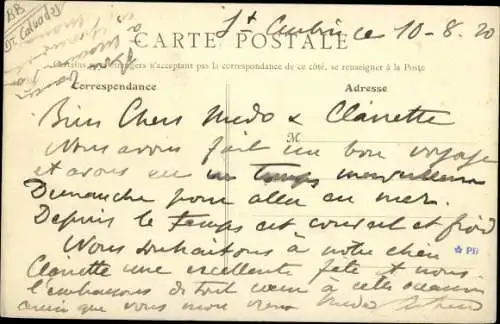 BB
Dt Calvados
St Aubin ce 10-8.20
CARTE POSTALE
étrangers n'acceptant pas la correspondance de ce côté, se renseigner à la Poste
Correspondance
Adresse
M
Bien Chers Médo & Clairette
Nous avons fait un bon voyage
et avons eu un temps merveilleux
Dimanche pour aller en mer.
Depuis le temps est couvert et froid
Nous souhaitons à notre chère
Clairette une excellente fête & nous
l'embrassons de tout cœur à cette occasion
ainsi que vous mon vieux Médo